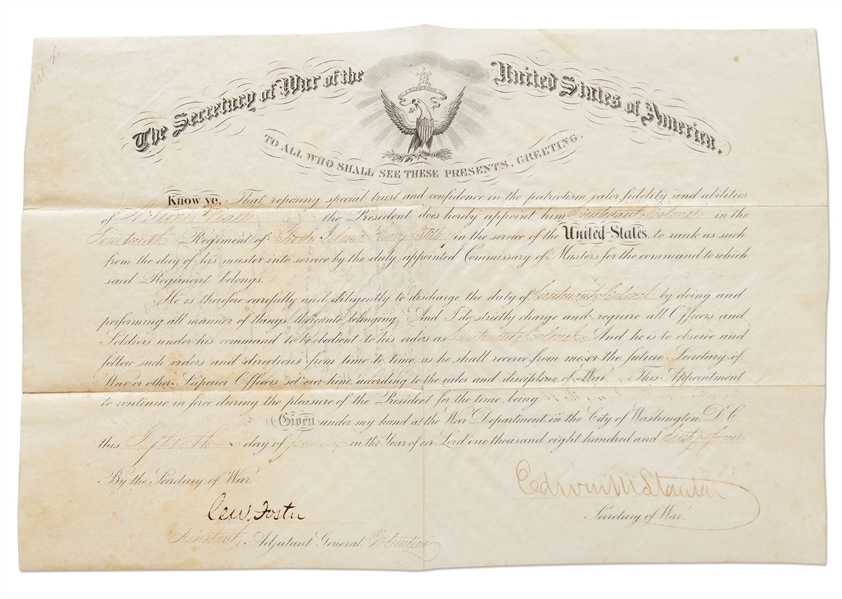 The Secretary of War of the United States of America.
TO ALL WHO SHALL SEE THESE PRESENTS, GREETING.
Know ye, That reposing special trust and confidence in the patriotism, valor, fidelity and abilities
of the President does hereby appoint him Lieutenant Colonel in the
Regiment of in the service of the United States, to rank as such
from the day of his muster into service by the duly appointed Commissary of Musters for the command to which
said Regiment belongs.
He is therefore carefully and diligently to discharge the duty of Lieutenant Colonel by doing and
performing all manner of things thereunto belonging. And I do strictly charge and require all Officers and
Soldiers under his command to be obedient to his orders as Lieutenant Colonel And he is to observe and
follow such orders and directions from time to time, as he shall receive from me or the future Secretary of
War or other Superior Officers set over him, according to the rules and discipline of War. This Appointment
to continue in force during the pleasure of the President for the time being.
Given under my hand at the War Department, in the City of Washington, D. C.
this day of in the Year of our Lord one thousand eight hundred and Sixty four
By the Secretary of War.
Edwin M Stanton
C.W. Foster
Secretary of War.
Assistant Adjutant General Volunteers